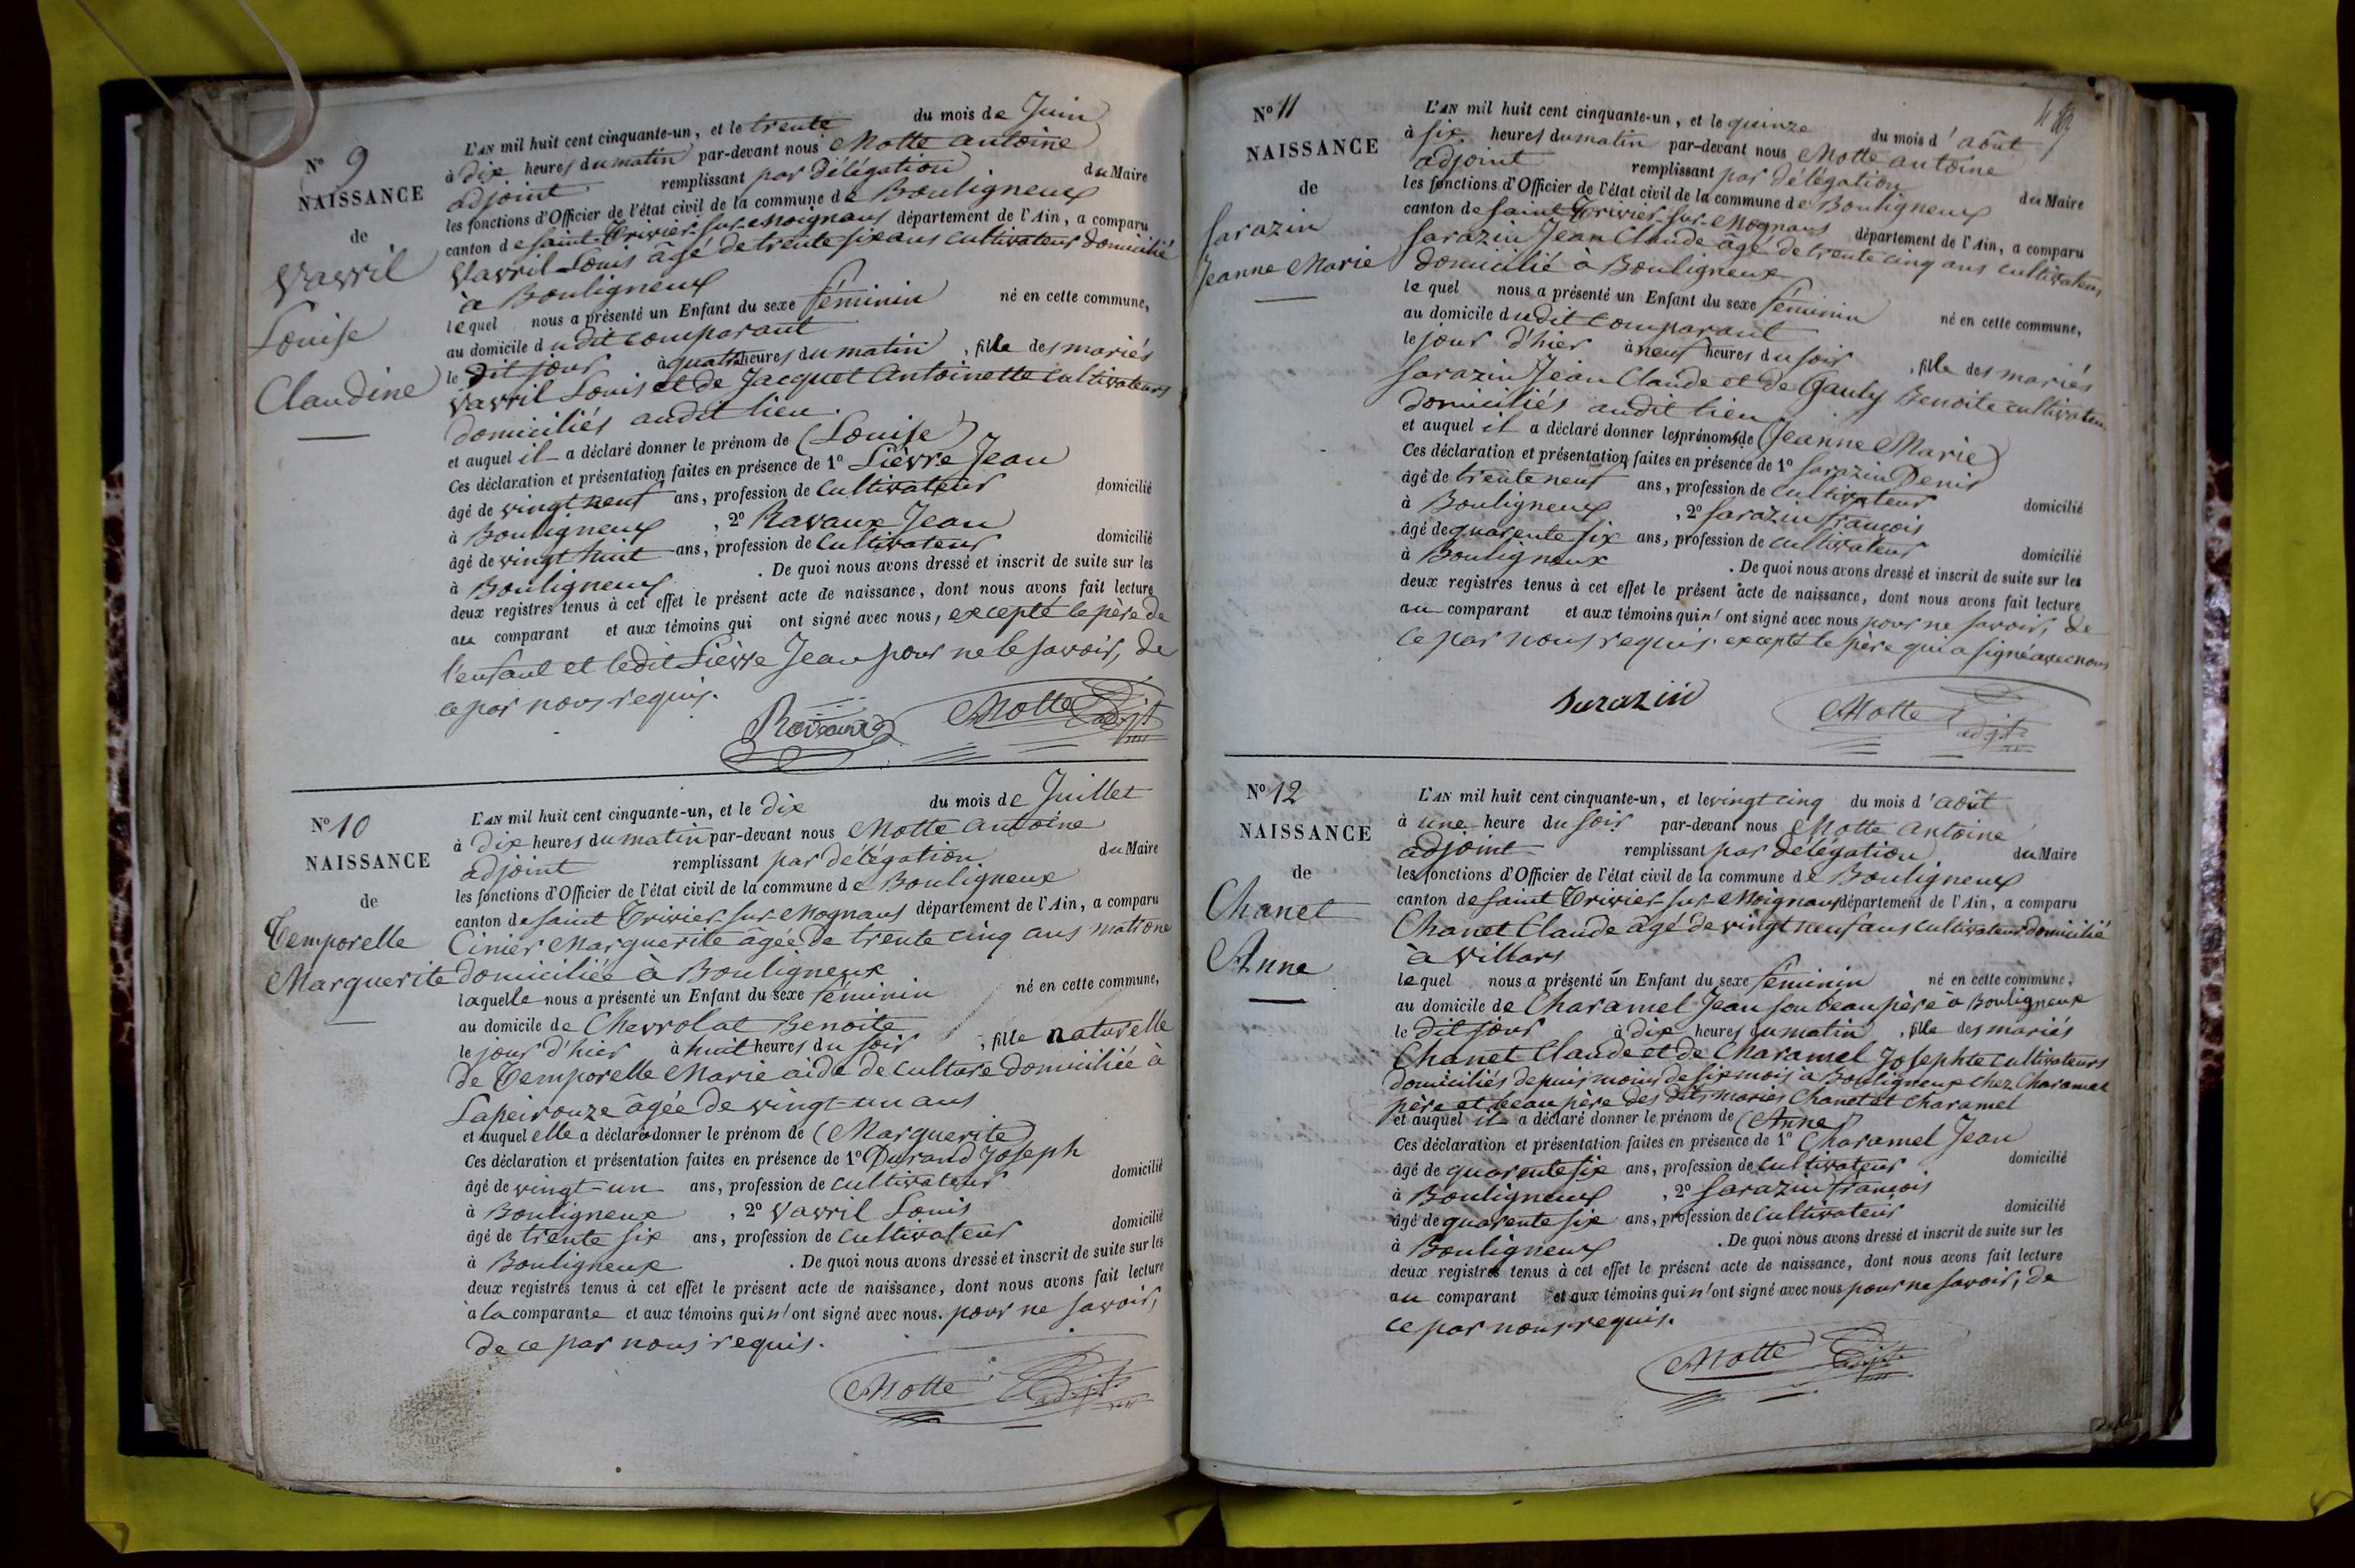 N° 9
NAISSANCE
de
Vavril
Louise
Claudine
L'AN mil huit cent cinquante-un, et le trente du mois de Juin
à dix heures du matin par-devant nous Motte antoine
adjoint remplissant par délégation du Maire
les fonctions d'Officier de l'état civil de la commune de Bouligneux
canton de saint-Trivier-sur-Moignans département de l'Ain, a comparu
Vavril Louis âgé de trente six ans cultivateur domicilié
à Bouligneux
lequel nous a présenté un Enfant du sexe féminin né en cette commune,
au domicile dudit comparant
le dit jour à quatre heures du matin, fille des mariés
Vavril Louis et de Jacquet Antoinette cultivateurs
domiciliés audit lieu.
et auquel il a déclaré donner le prénom de (Louise)
Ces déclaration et présentation faites en présence de 1° Lièvre Jean
âgé de vingt neuf ans, profession de cultivateur domicilié
à Bouligneux, 2° Ravaux Jean
âgé de vingt huit ans, profession de cultivateur domicilié
à Bouligneux. De quoi nous avons dressé et inscrit de suite sur les
deux registres tenus à cet effet le présent acte de naissance, dont nous avons fait lecture
au comparant et aux témoins qui ont signé avec nous, excepté le père de
l'enfant et ledit Lièvre Jean pour ne le savoir, de
ce par nous requis.
Ravaux Motte adjt
N° 10
NAISSANCE
de
Temporelle
Marguerite
L'AN mil huit cent cinquante-un, et le dix du mois de Juillet
à dix heures du matin par-devant nous Motte antoine
adjoint remplissant par délégation du Maire
les fonctions d'Officier de l'état civil de la commune de Bouligneux
canton de saint Trivier-sur-Mognans département de l'Ain, a comparu
Cinier Marguerite âgée de trente cinq ans matrone
domiciliée à Bouligneux
laquelle nous a présenté un Enfant du sexe féminin né en cette commune,
au domicile de Chevrolat Benoite
le jour d'hier à huit heures du soir, fille naturelle
de Temporelle Marie aide de culture domiciliée à
Lapeirouze âgée de vingt-un ans
et auquel elle a déclaré donner le prénom de (Marguerite)
Ces déclaration et présentation faites en présence de 1° Durand Joseph
âgé de vingt-un ans, profession de cultivateur domicilié
à Bouligneux, 2° Vavril Louis
âgé de trente six ans, profession de cultivateur domicilié
à Bouligneux. De quoi nous avons dressé et inscrit de suite sur les
deux registres tenus à cet effet le présent acte de naissance, dont nous avons fait lecture
à la comparante et aux témoins qui n'ont signé avec nous. pour ne savoir,
de ce par nous requis.
Motte adjt
N° 11
NAISSANCE
de
Sarazin
Jeanne Marie
L'AN mil huit cent cinquante-un, et le quinze du mois d'août
à six heures du matin par-devant nous Motte antoine
adjoint remplissant par délégation du Maire
les fonctions d'Officier de l'état civil de la commune de Bouligneux
canton de saint-Trivier-sur-Mognans département de l'Ain, a comparu
Sarazin Jean Claude âgé de trente cinq ans cultivateur
domicilié à Bouligneux
lequel nous a présenté un Enfant du sexe féminin né en cette commune,
au domicile dudit comparant
le jour d'hier à neuf heures du soir, fille des mariés
Sarazin Jean Claude et de Gauly Benoite cultivateurs
domiciliés audit lieu
et auquel il a déclaré donner les prénoms de (Jeanne Marie)
Ces déclaration et présentation faites en présence de 1° Sarazin Denis
âgé de trente neuf ans, profession de cultivateur domicilié
à Bouligneux, 2° Sarazin françois
âgé de quarente six ans, profession de cultivateur domicilié
à Bouligneux. De quoi nous avons dressé et inscrit de suite sur les
deux registres tenus à cet effet le présent acte de naissance, dont nous avons fait lecture
au comparant et aux témoins qui n'ont signé avec nous pour ne savoir, de
ce par nous requis. excepté le père qui a signé avec nous
Sarazin Motte adjt
N° 12
NAISSANCE
de
Chanet
Anne
L'AN mil huit cent cinquante-un, et le vingt cinq du mois d'août
à une heure du soir par-devant nous Motte Antoine
adjoint remplissant par délégation du Maire
les fonctions d'Officier de l'état civil de la commune de Bouligneux
canton de saint Trivier-sur-Moignans département de l'Ain, a comparu
Chanet Claude âgé de vingt neuf ans cultivateur domicilié
à Villars
lequel nous a présenté un Enfant du sexe féminin né en cette commune,
au domicile de Charamel Jean son beau père à Bouligneux
le dit jour à dix heures du matin, fille des mariés
Chanet Claude et de Charamel Josephte cultivateurs
domiciliés depuis moins de six mois à Bouligneux chez Charamel
père et beau père des dits mariés Chanet et Charamel
et auquel il a déclaré donner le prénom de (Anne)
Ces déclaration et présentation faites en présence de 1° Charamel Jean
âgé de quarente six ans, profession de cultivateur domicilié
à Bouligneux, 2° Sarazin françois
âgé de quarente six ans, profession de cultivateur domicilié
à Bouligneux. De quoi nous avons dressé et inscrit de suite sur les
deux registres tenus à cet effet le présent acte de naissance, dont nous avons fait lecture
au comparant et aux témoins qui n'ont signé avec nous pour ne savoir, de
ce par nous requis.
Motte adjt